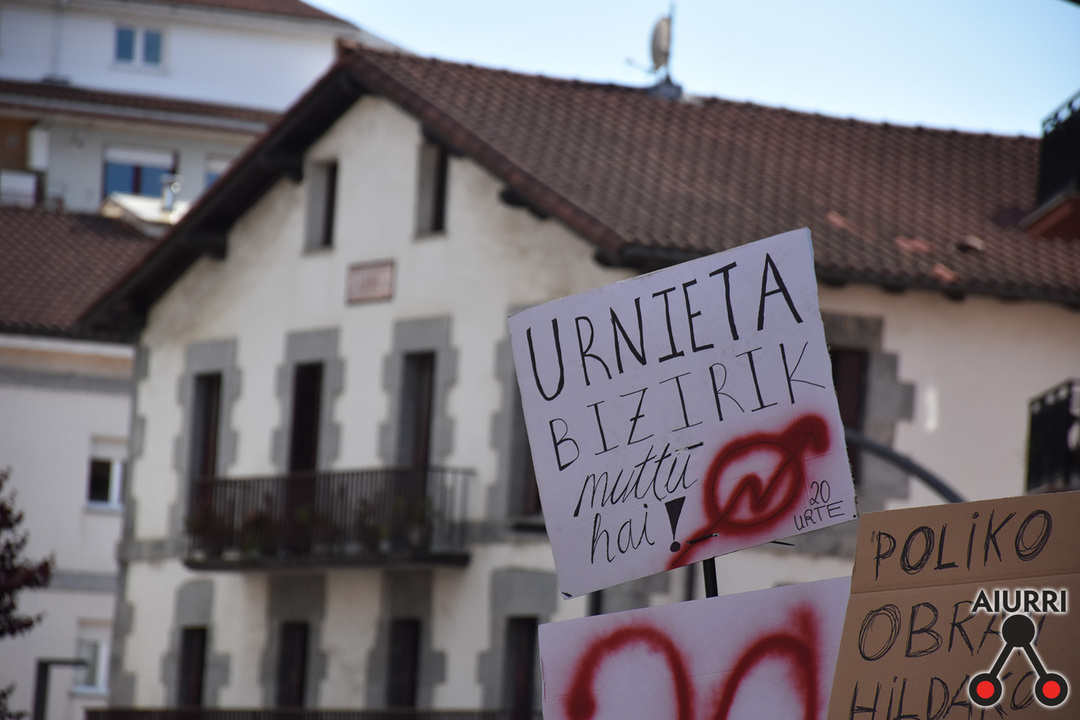 URNIETA
BIZIRIK
muttu
hai!
20
URTE
POLIKO
OBRAK
HILDAKO
AIURRI